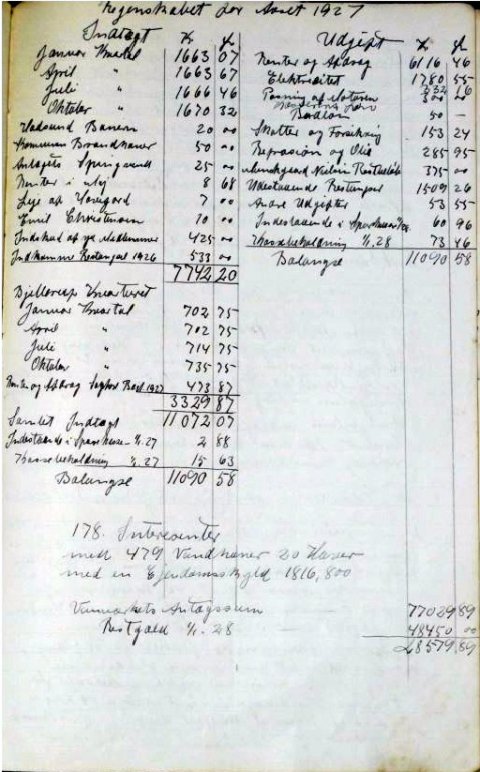 Regnskabet for Aaret 1927
Indtægt Kr. Ø.
Januar Kvartal 1663 07
April " 1663 67
Juli " 1666 46
Oktober " 1670 32
Vadsund Banern 20 00
Kommunen Brandhaner 50 00
Anlægets Springvand 25 00
Renter i 8 68
Leje af 7 00
Emil Christensen 10 00
Indskud af ny Medlemmer 425 00
Indkomne Restanser 1926 533 00
7742 20
Djellerup Kvarteret
Januar Kvartal 702 75
April " 702 75
Juli " 714 75
Oktober " 735 75
Renter og Afdrag 1927 473 87
3329 87
Samlet Indtægt 11072 07
Indestaaende i Sparekasse 1/1-27 2 88
Kassebeholdning 1/1.27 15 63
Balangse 11090 58
Udgift Kr. Ø.
Renter og Afdrag 6116 46
Elektricitet 1780 55
Pasning af Motoren 332 16
300
50 –
Skatter og Forsikring 153 24
Reprasion og Olie 285 95
375 00
Udestaaende Restanser 1509 26
Andre Udgifter 53 55
Indestaaende i Sparekasse 60 96
Kassebeholdning 1/1.28 73 46
Balangse 11090 58
178. Interesenter
med 479 Vandhaner 20 Haver
med en Ejendomsskyld 1816,800
Vanværkets Anlægssum 77029 89
Restgæld 1/1-28 48450 00
28579 89